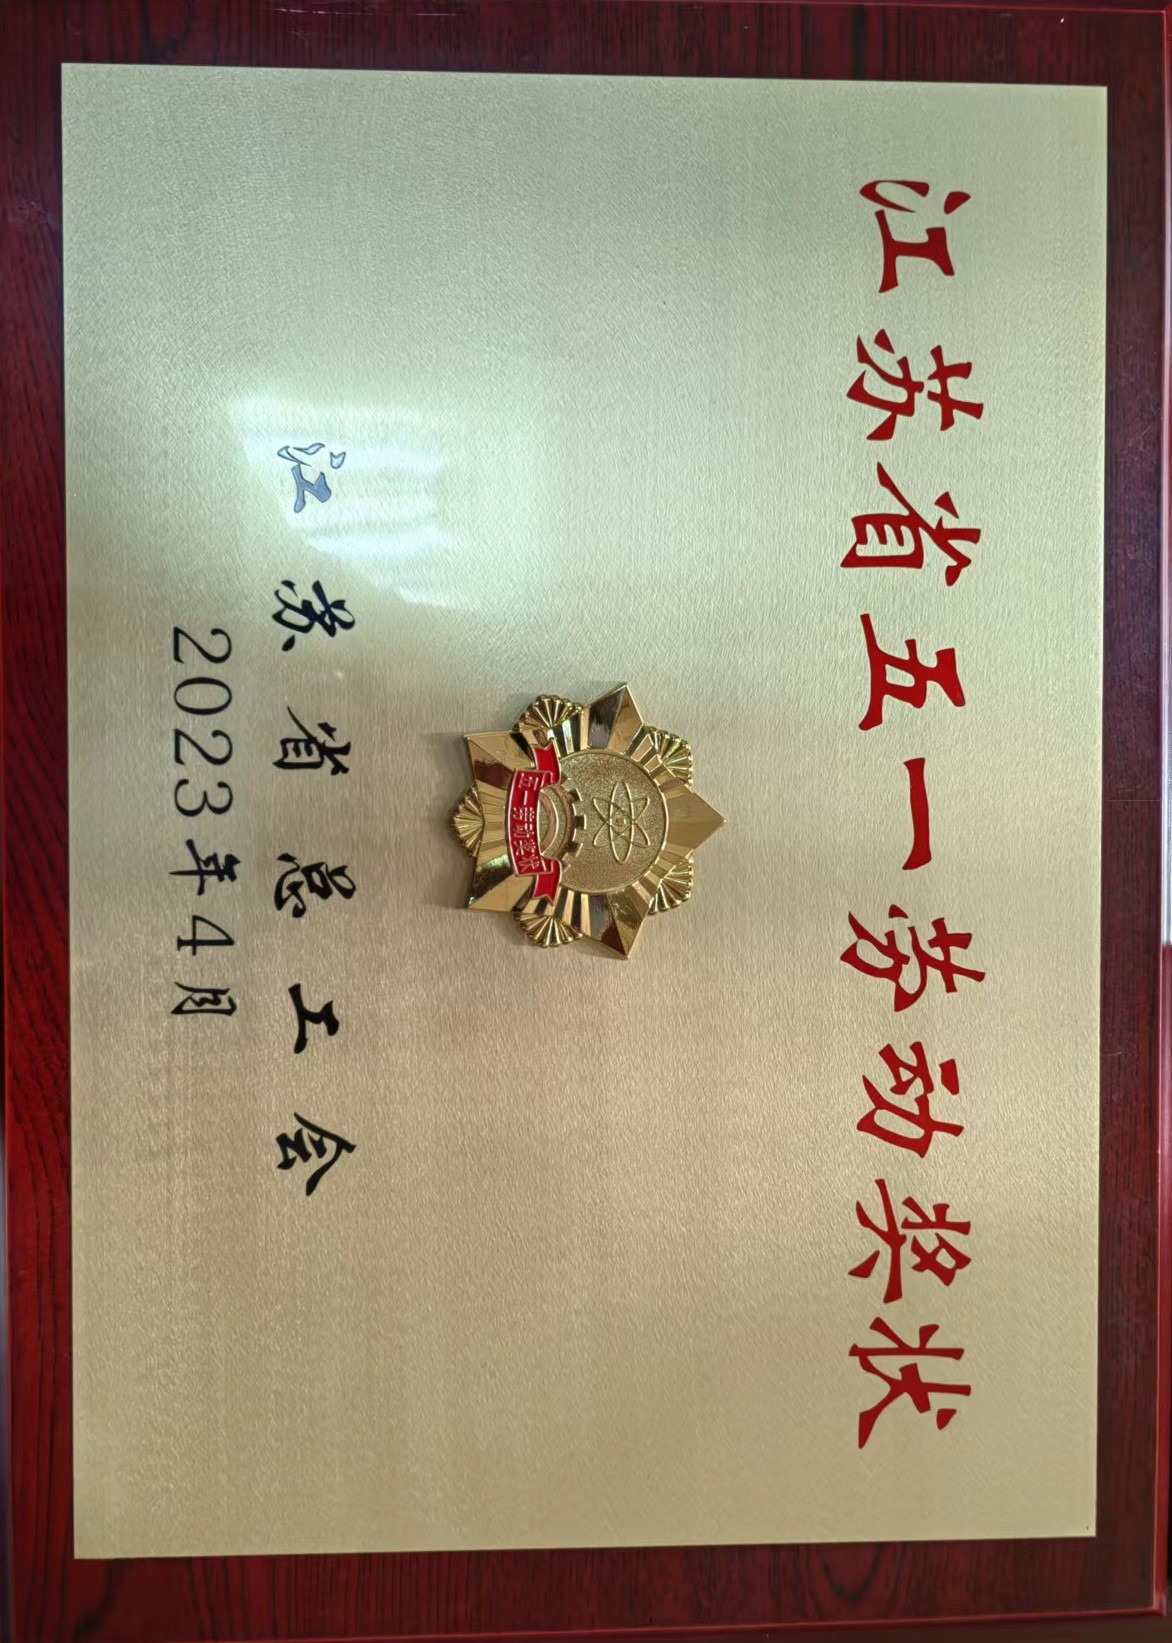 江苏省五一劳动奖状
五一劳动奖状
江苏省总工会
2023年4月